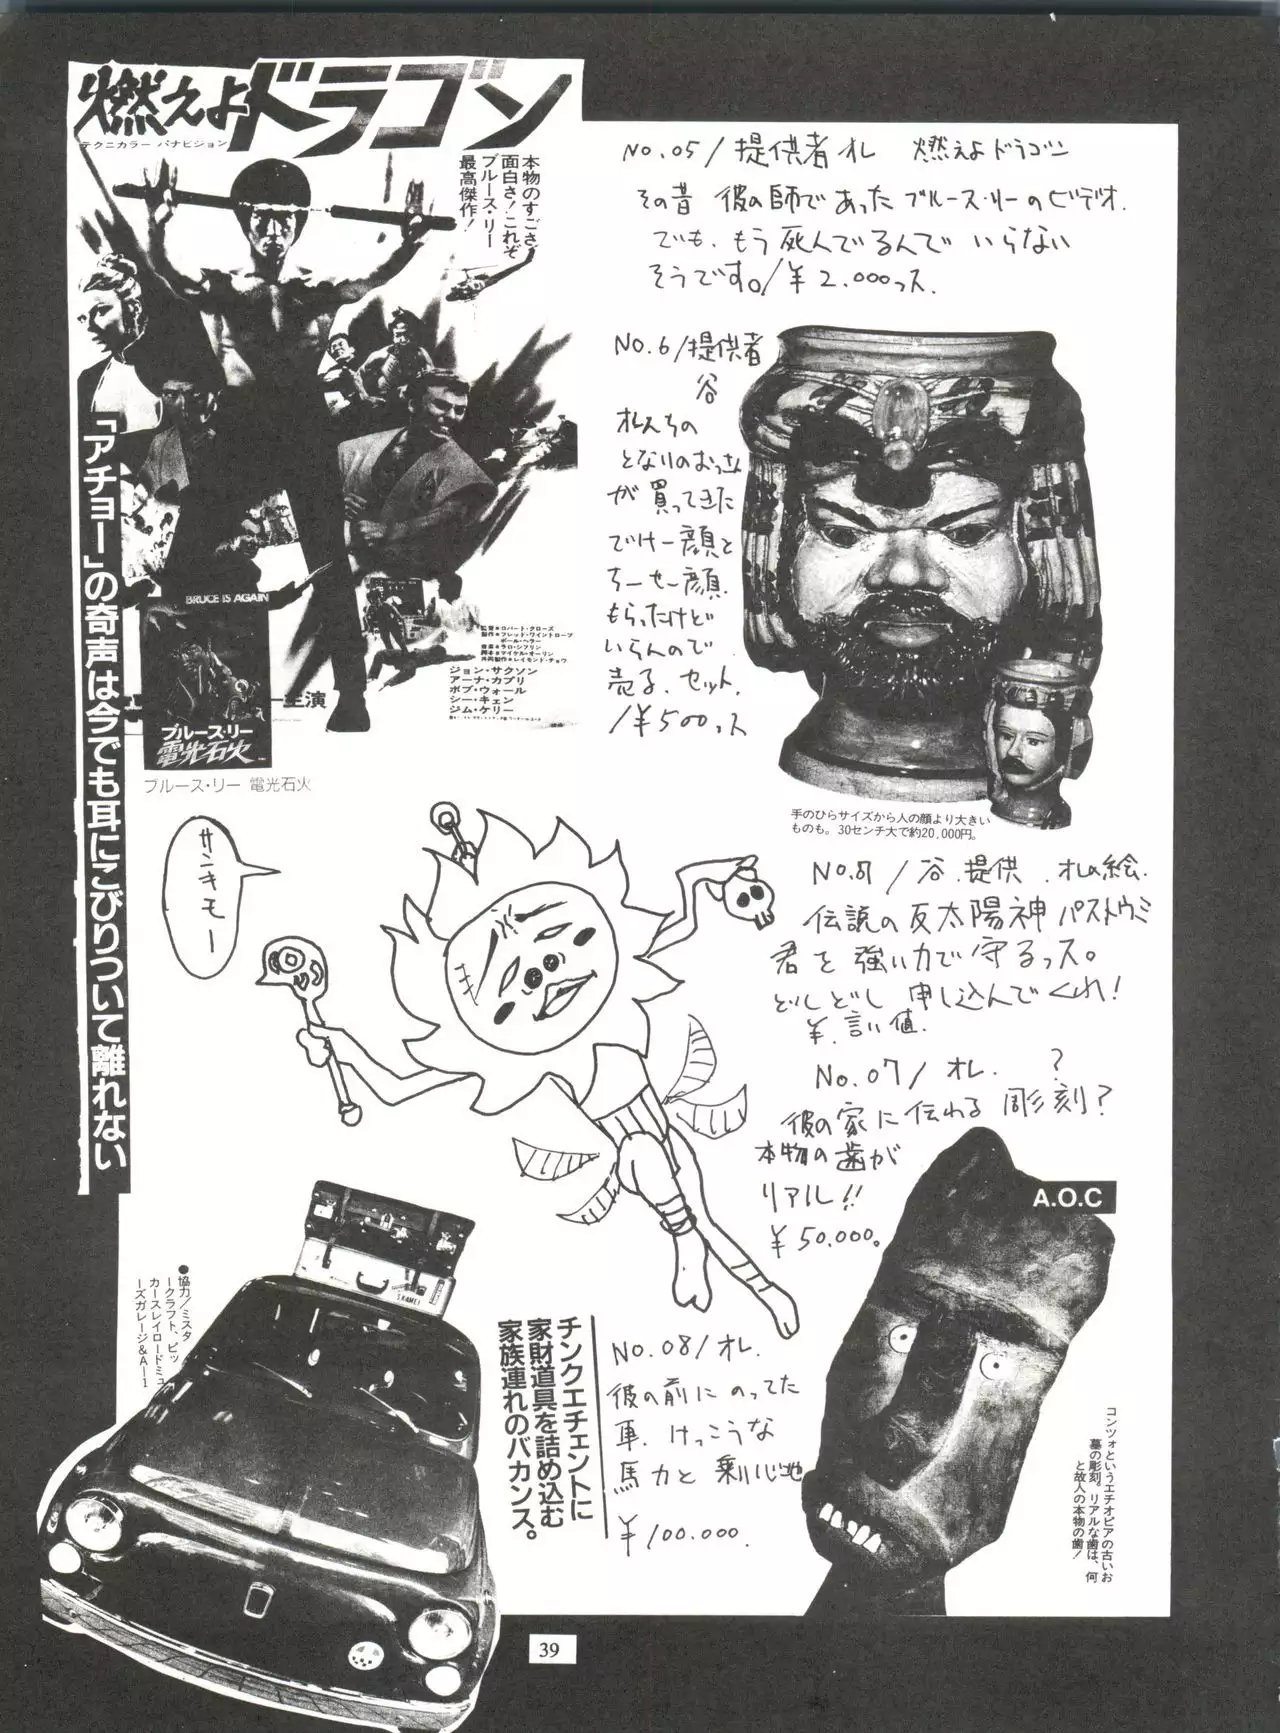 燃えよドラゴン
テクニカラー パナビジョン
本物のすごさ、
面白さ!これぞ
ブルース・リー
最高傑作!
「アチョー」の奇声は今でも耳にこびりついて離れない
BRUCE IS AGAIN
監督●ロバート・クローズ
製作●フレッド・ワイントローブ
ポール・ヘラー
音楽●ラロ・シフリン
脚本●マイケル・オーリン
共同製作●レイモンド・チョウ
ジョン・サクソン
アーナ・カプリ
ボブ・ウォール
シー・キェン
ジム・ケリー
主演
ブルース・リー
電光石火
ブルース・リー 電光石火
No.05/提供者オレ 燃えよドラゴン
その昔 彼の師であったブルース・リーのビデオ.
でも、もう死んでるんで いらない
そうです。/¥2.000っス.
No.6/提供者
谷
オレんちの
となりのおっさん
が買ってきた
でけー顔と
ちーせー顔.
もらったけど
いらんので
売る.セット.
/¥500っス
手のひらサイズから人の顔より大きい
ものも。30センチ大で約20,000円。
サンキモー
No.87/谷.提供.オレの絵.
伝説の反太陽神パストウミ
君を強い力で守るっス。
どしどし申し込んでくれ!
¥.言い値.
No.07/オレ. ?
彼の家に伝わる彫刻?
本物の歯が
リアル!!
¥50.000。
A.O.C
コンツォというエチオピアの古いお
墓の彫刻。リアルな歯は、何
と故人の本物の歯!
●協力/ミスタ
ークラフト、ビッ
カースレイロードミュ
ーズガレージ&A-1
チンクエチェントに
家財道具を詰め込む
家族連れのバカンス。
No.08/オレ.
彼の前にのってた
車.けっこうな
馬力と乗り心地
¥100.000.
39